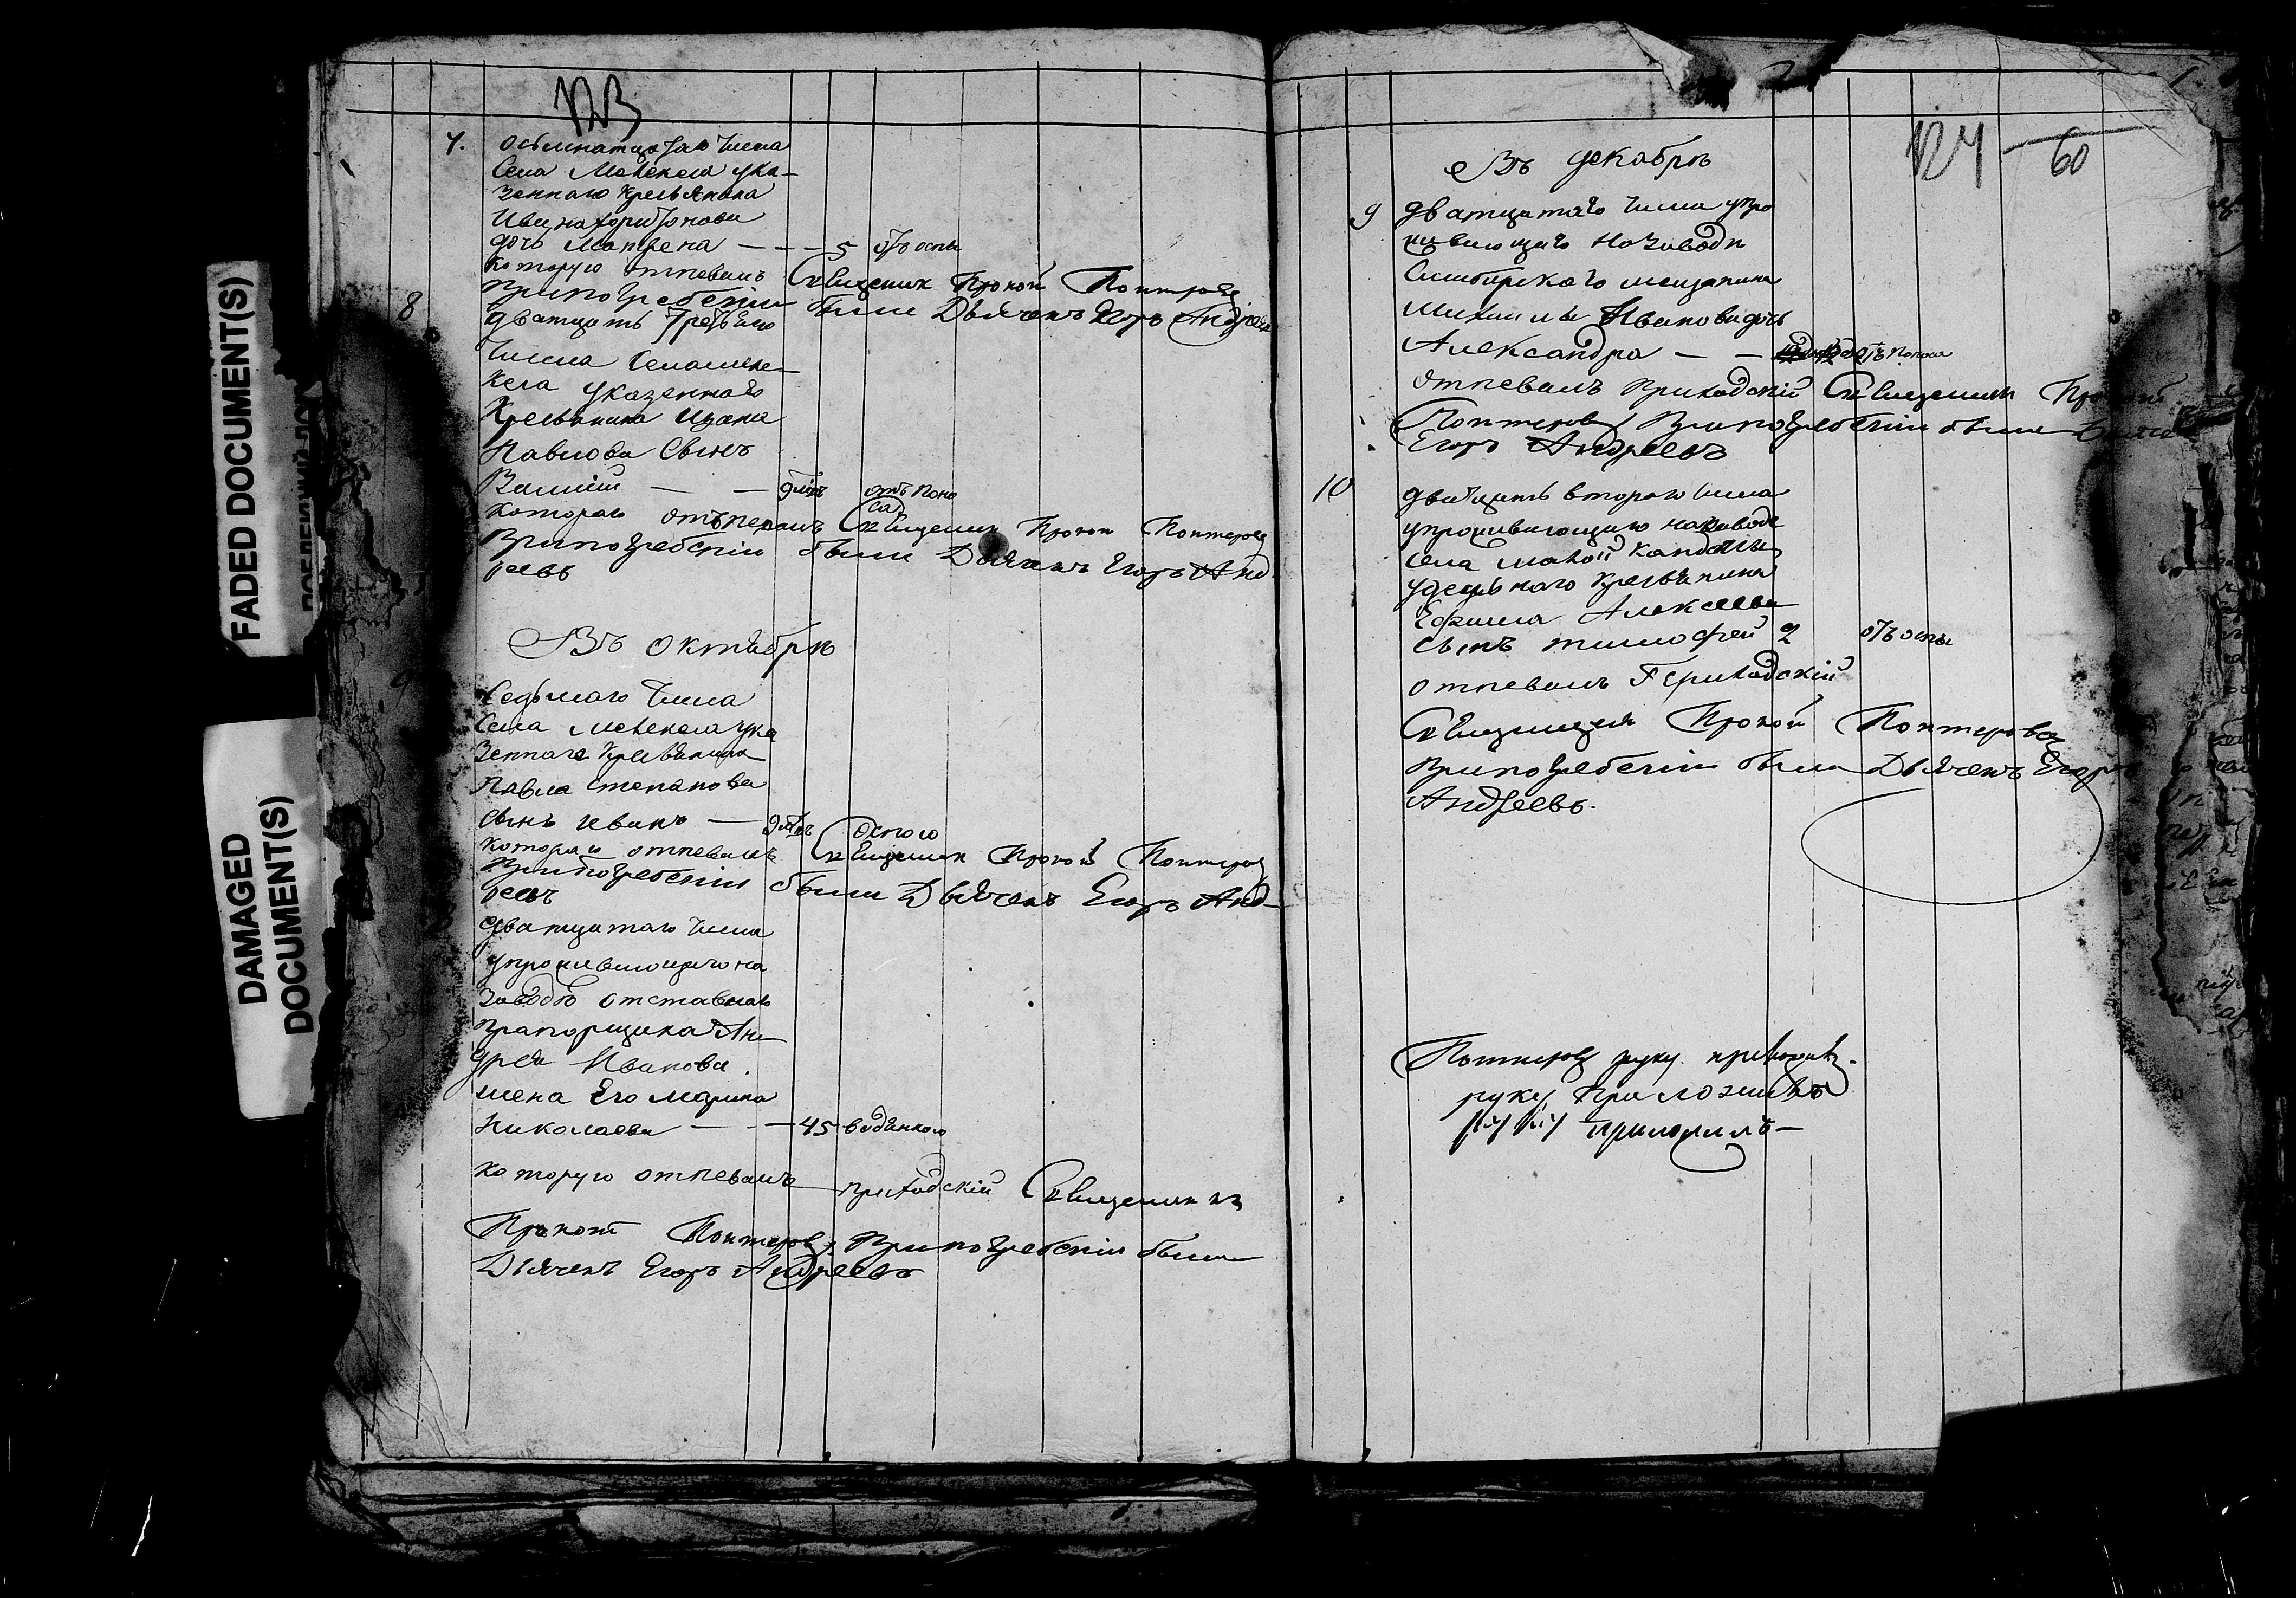 FADED DOCUMENT(S)
DAMAGED
DOCUMENT(S)
123
7. осьмнатцатаго числа
Села ука-
зеннаго крестьянина
Ивана Харитонова
дочь Матрена — — 5 отъ оспы
которую отпевалъ Священник Прокоп
при погребении были Дьячекъ Егоръ Андрее
8 дватцать третьяго
числа села
указеннаго
Крестьянина Ивана
Павлова Сынъ
— — отъ поно
са
котораго отъпевалъ Священник Прокоп
при погребении были Дьячекъ Егоръ Анд-
реевъ
Въ октябре
9 Седьмаго числа
Села ука
зеннаго Крестьянина
Павла Степанова
сынъ Иванъ —
котораго отпевалъ Священник Прокоп
при погребении были Дьячекъ Егоръ Анд-
реевъ
дватцатаго числа
упроживающаго на
заводе отставнаго
прапорщика Ан-
дрея Иванова
жена Его Марина
Николаева — — 45 водянкою
которую отпевалъ приходский Священникъ
Прокоп при погребении были
Дьячекъ Егоръ Андреевъ
124 60
Въ декабре
9 дватцатаго числа упро
живающаго на заводе
Симбирскаго мещанина
Михаилы Иванова дочь
Александра — — отъ поноса
отпевалъ приходский Священник Прокоп
при погребении были
Егоръ Андреевъ
10 дватцать втораго числа
упроживающаго на заводе
села Малой Кандалы
удельнаго крестьянина
Ефима Алексеева
сынъ тимофей 2 отъ оспы
отпевалъ Приходский
Священник Прокоп
при погребении были Дьячекъ Егоръ
Андреевъ.
руку
руку приложилъ
руку приложилъ